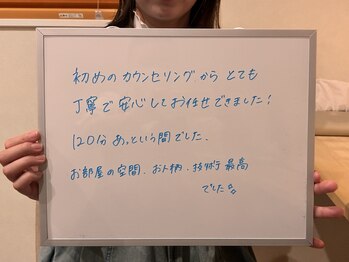 初めのカウンセリングからとても
丁寧で安心してお任せできました！
120分あっという間でした.
お部屋の空間、お人柄、技術最高
でした